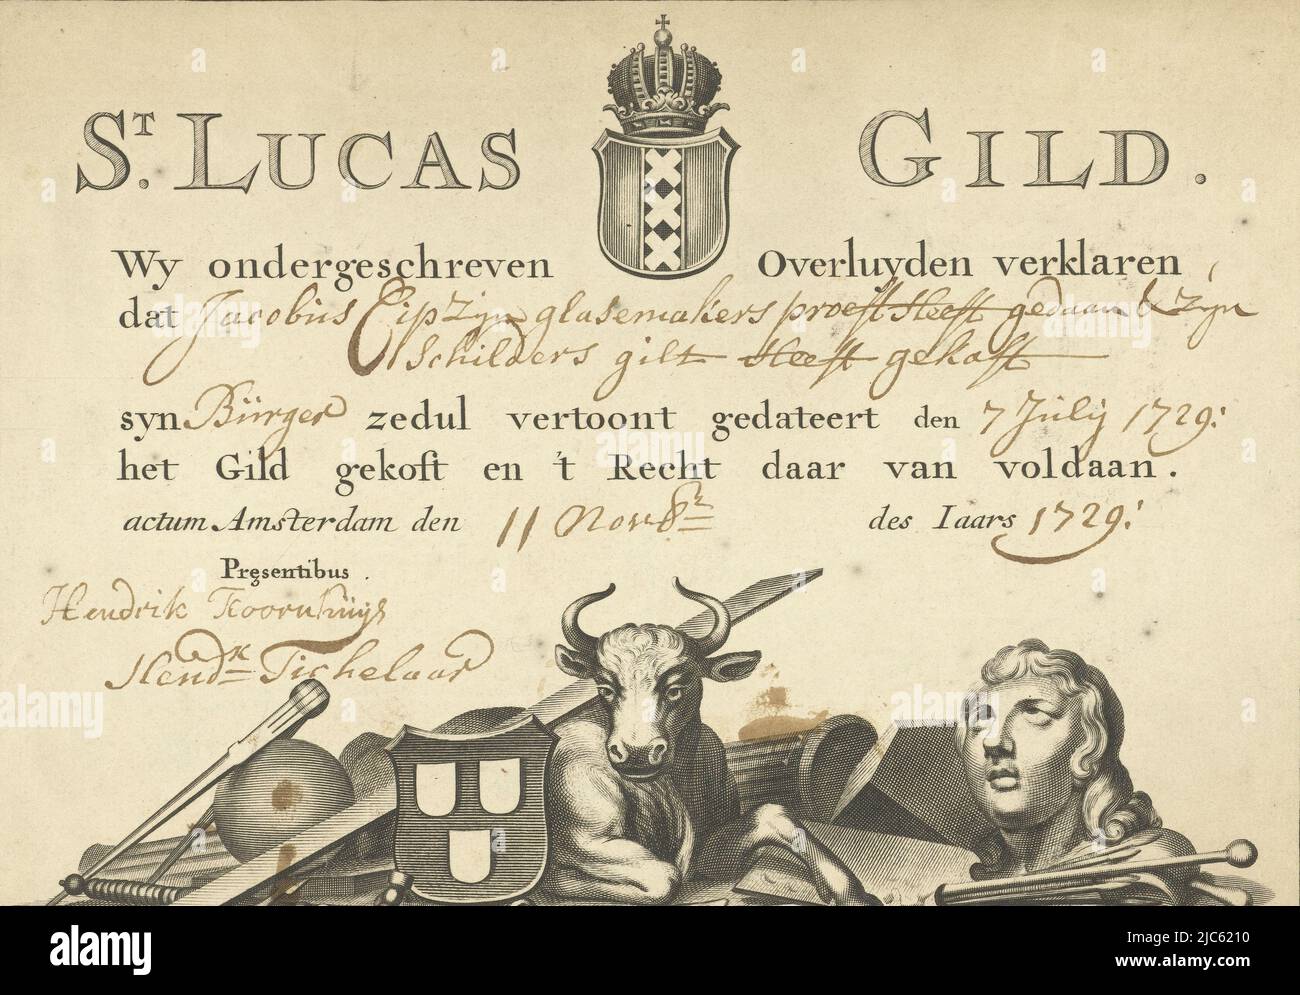 ST. LUCAS GILD.
Wy ondergeschreven Overluyden verklaren
dat Jacobus Eip Zijn glasemakers proeft Heeft gedaan & Zijn
Schilders gilt Heeft gekoft
syn Bürger zedul vertoont gedateert den 7 Jülij 1729:
het Gild gekoft en 't Recht daar van voldaan.
actum Amsterdam den 11 Novr 8br des Iaars 1729:
Præsentibus.
Hendrik Koornhüijs
Hendk Tichelaar
alamy
Image ID: 2JC6210
www.alamy.com